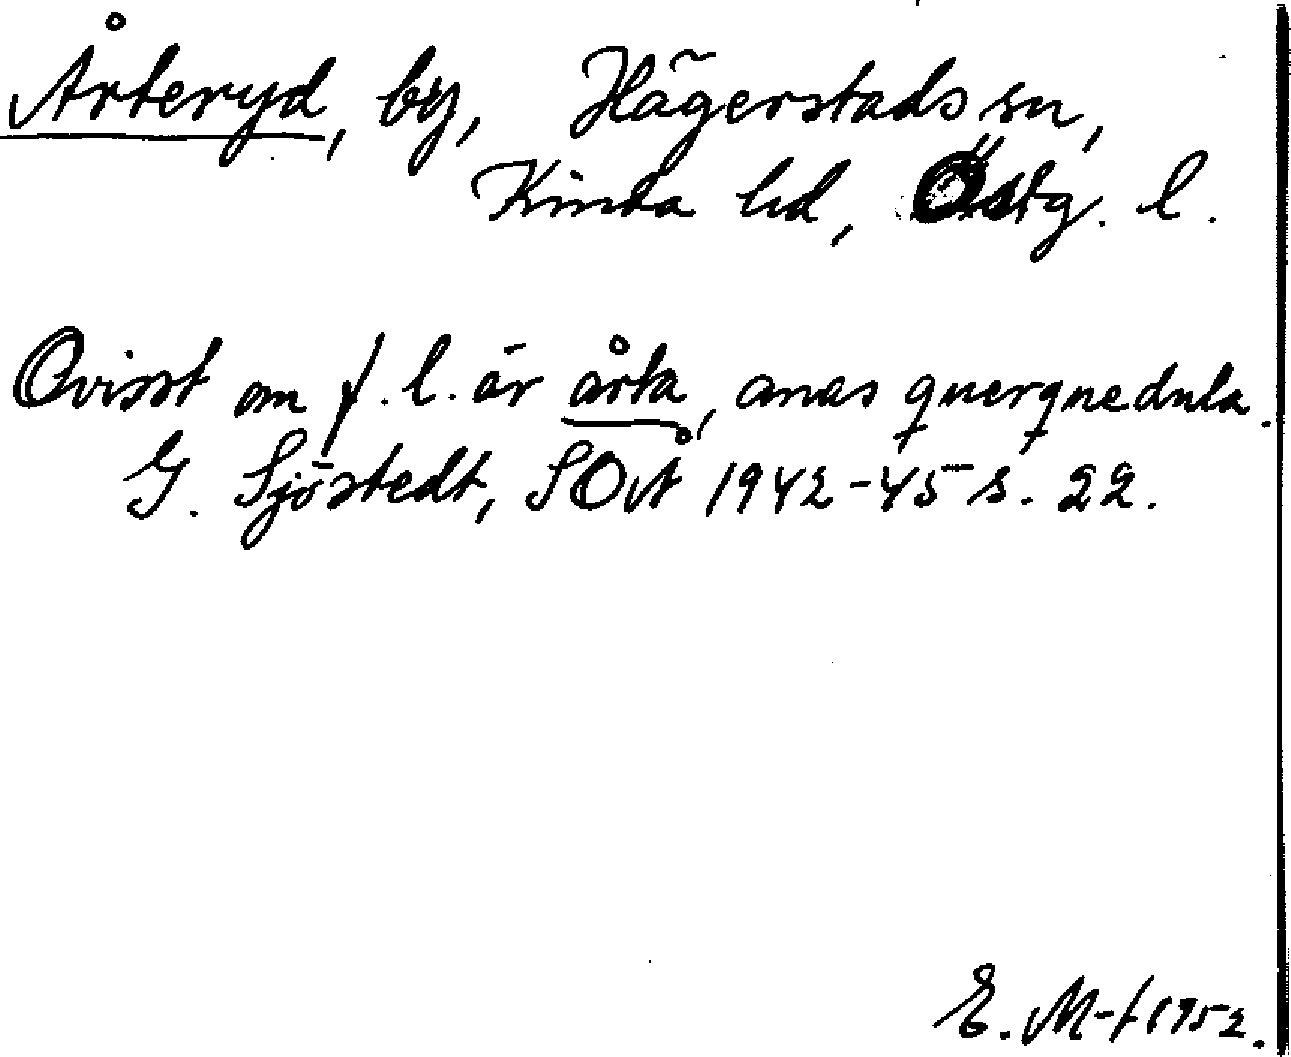 Årteryd, by, Hägerstads sn,
Kinda hd, Östg. l.
Ovisst om f. l. är årta, anas querquedula.
G. Sjöstedt, SOvÅ 1942-45 s. 22.
E. M-f 1952.